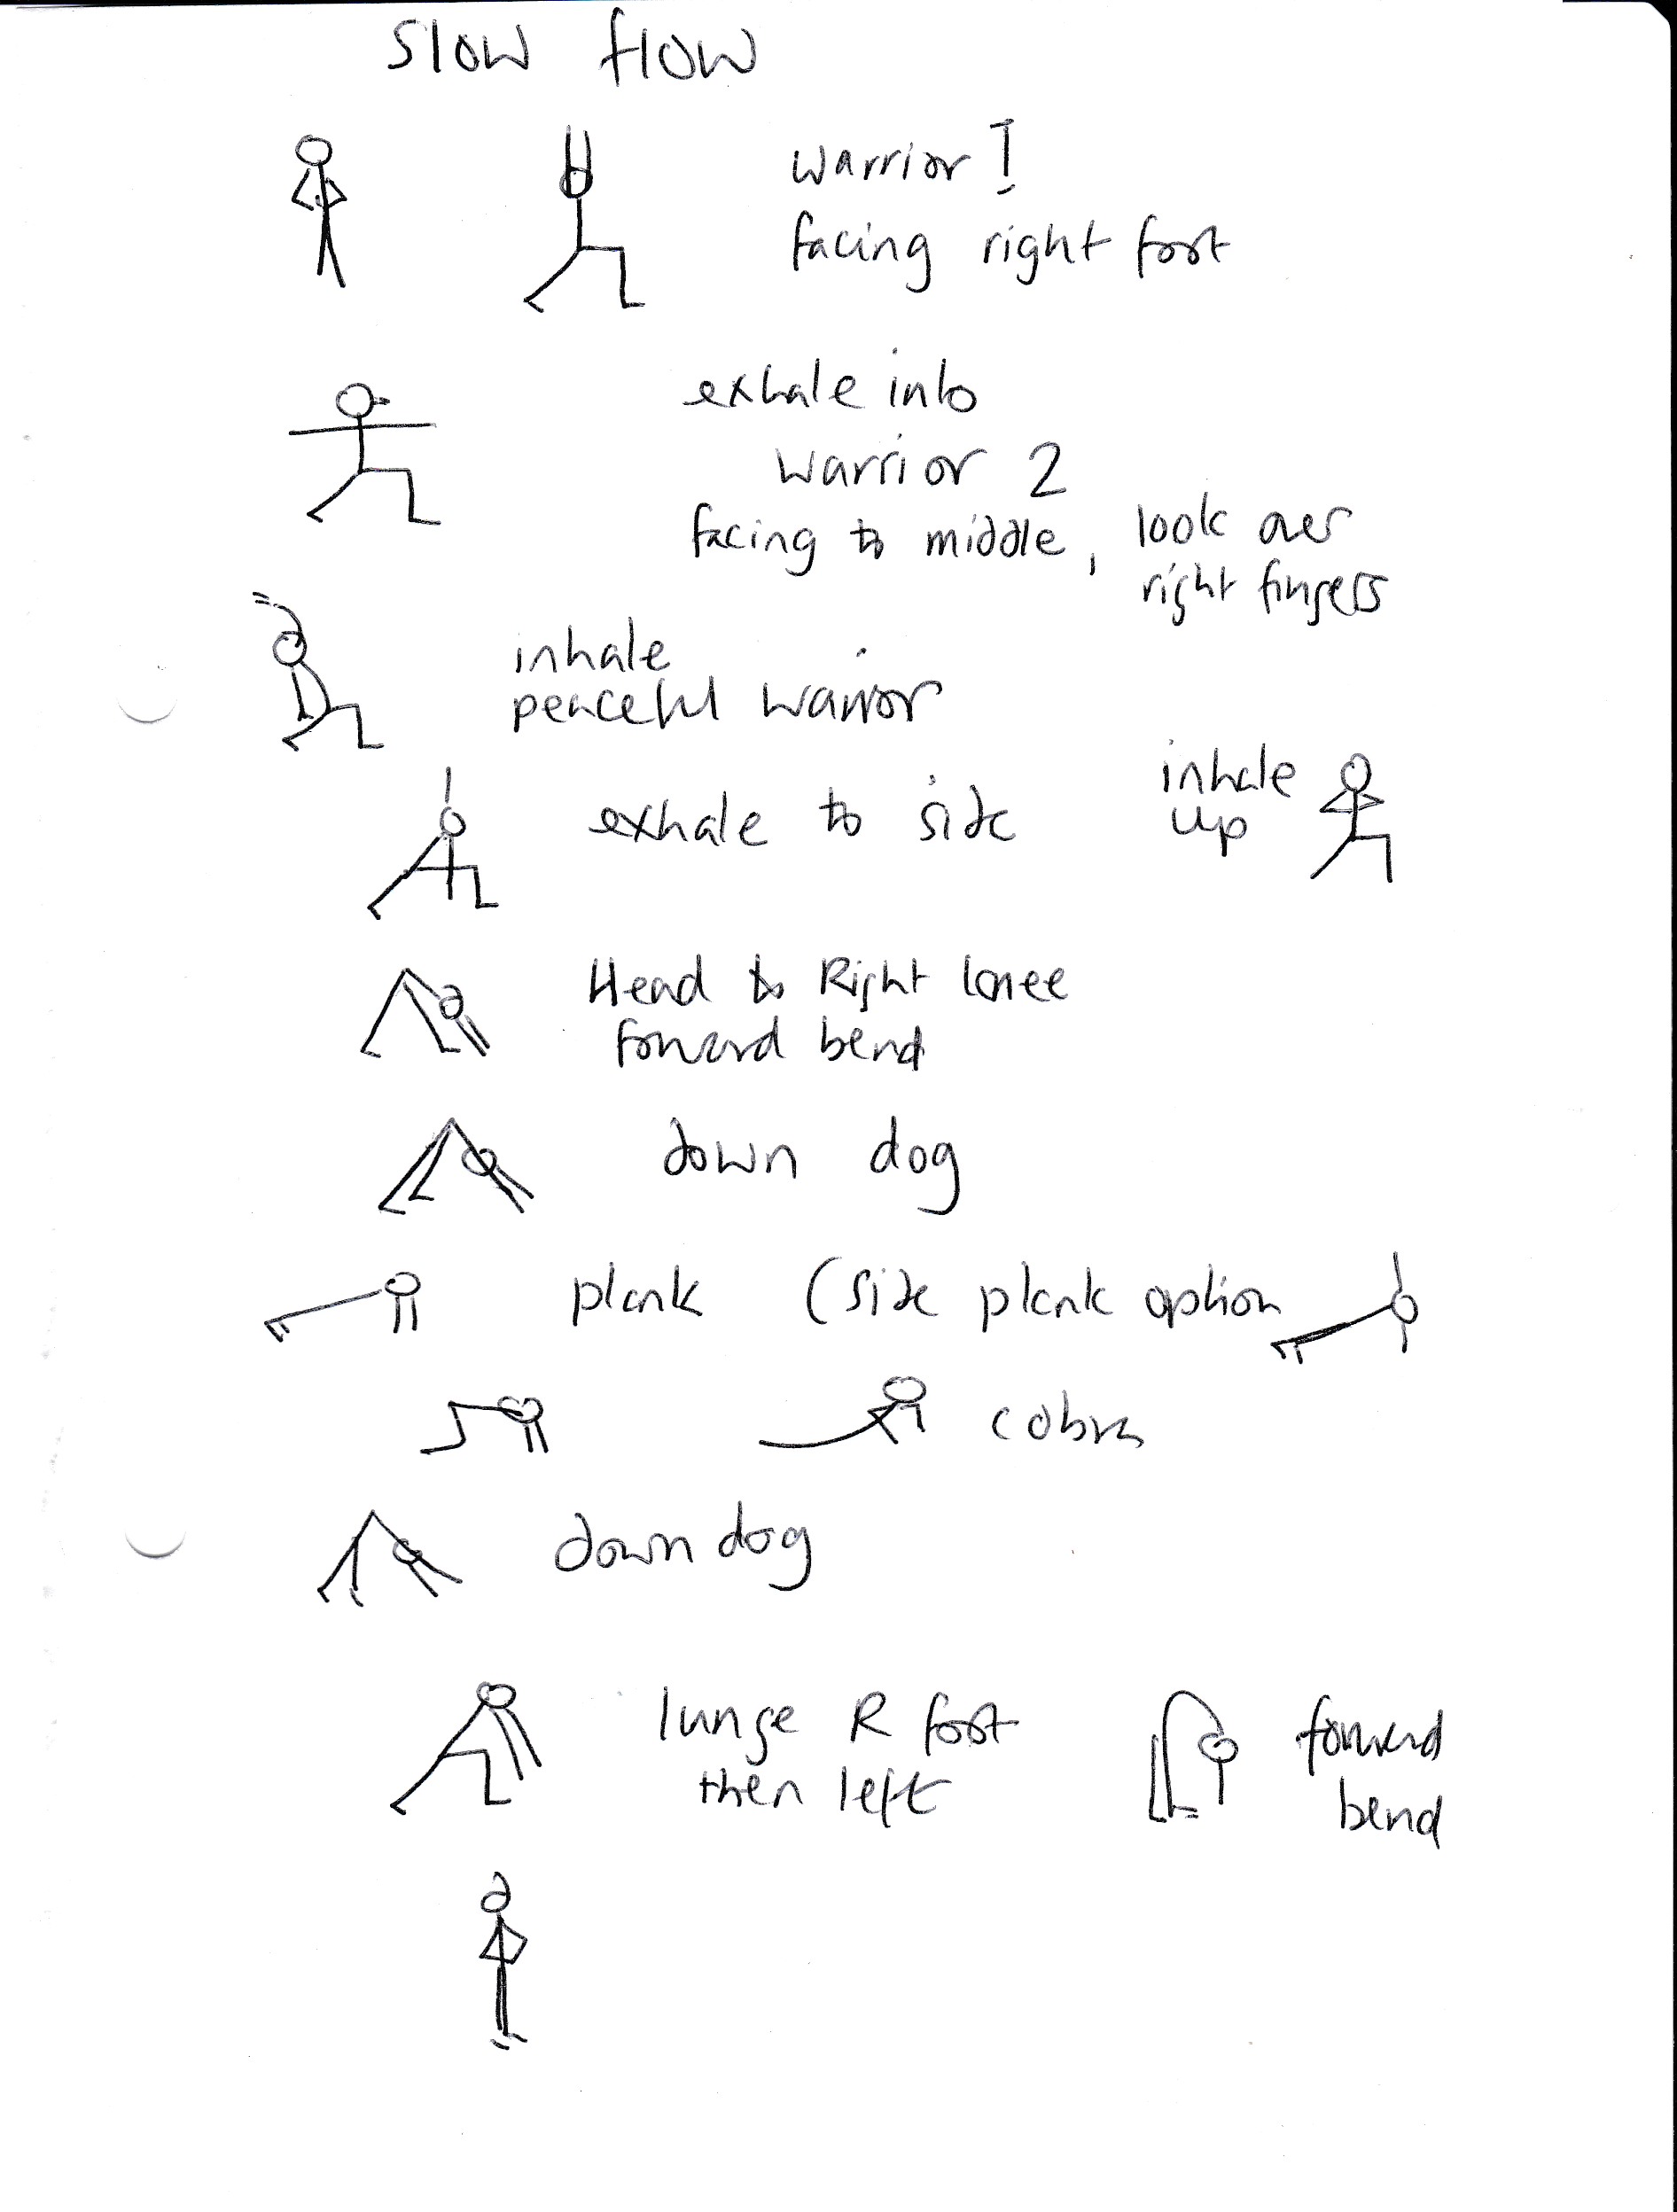 slow flow
warrior I
facing right foot
exhale into
warrior 2
facing to middle, look over
right fingers
inhale
peaceful warrior
exhale to side
inhale
up
Head to Right knee
forward bend
down dog
plank (side plank option
cobra
down dog
lunge R foot
then left
forward
bend